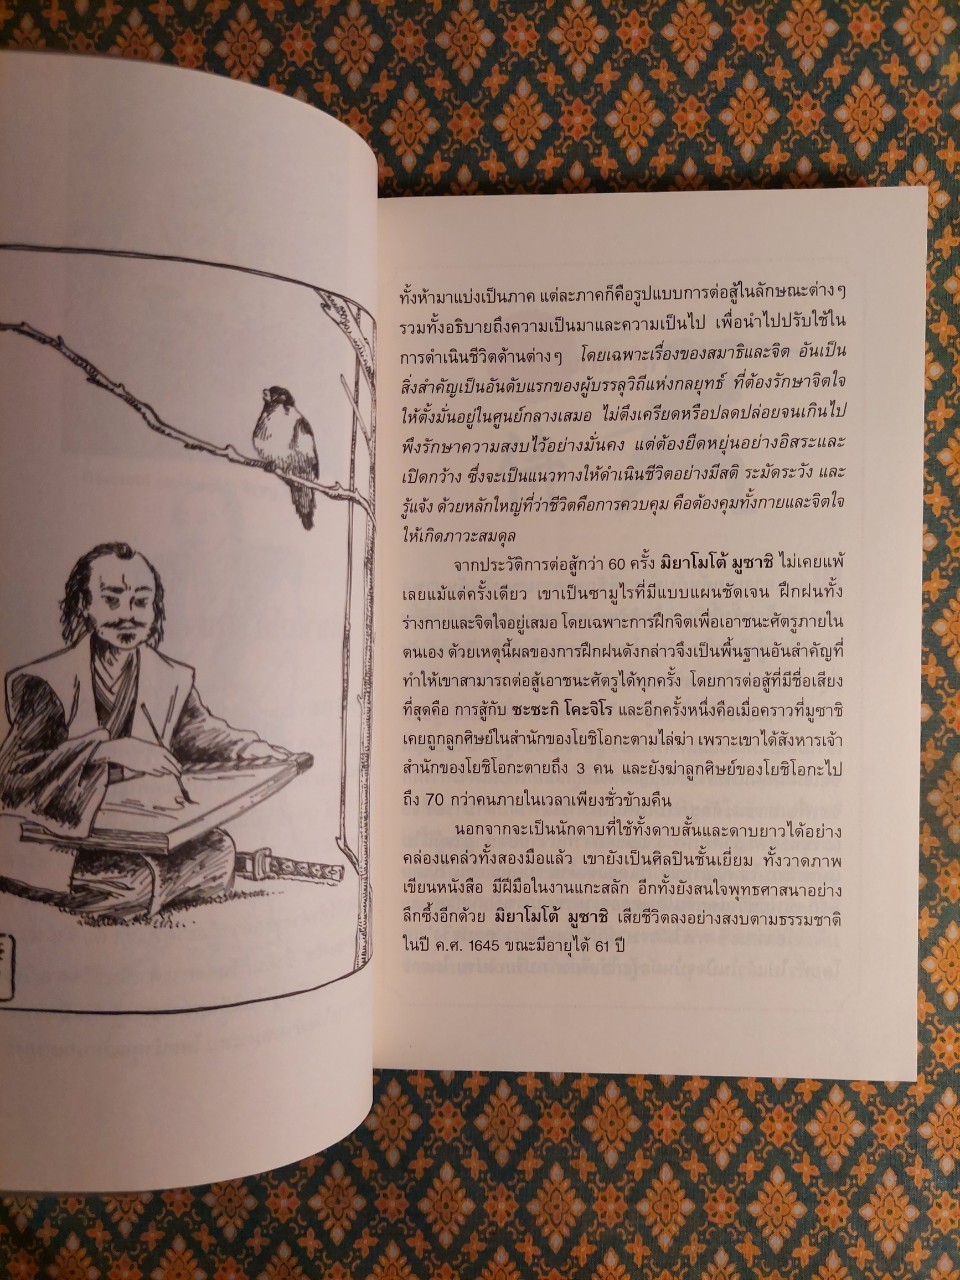 ทั้งห้ามาแบ่งเป็นภาค แต่ละภาคก็คือรูปแบบการต่อสู้ในลักษณะต่างๆ
รวมทั้งอธิบายถึงความเป็นมาและความเป็นไป เพื่อนำไปปรับใช้ใน
การดำเนินชีวิตด้านต่างๆ โดยเฉพาะเรื่องของสมาธิและจิต อันเป็น
สิ่งสำคัญเป็นอันดับแรกของผู้บรรลุวิถีแห่งกลยุทธ์ ที่ต้องรักษาจิตใจ
ให้ตั้งมั่นอยู่ในศูนย์กลางเสมอ ไม่ตึงเครียดหรือปลดปล่อยจนเกินไป
พึงรักษาความสงบไว้อย่างมั่นคง แต่ต้องยืดหยุ่นอย่างอิสระและ
เปิดกว้าง ซึ่งจะเป็นแนวทางให้ดำเนินชีวิตอย่างมีสติ ระมัดระวัง และ
รู้แจ้ง ด้วยหลักใหญ่ที่ว่าชีวิตคือการควบคุม คือต้องคุมทั้งกายและจิตใจ
ให้เกิดภาวะสมดุล
จากประวัติการต่อสู้กว่า 60 ครั้ง มิยาโมโต้ มูซาชิ ไม่เคยแพ้
เลยแม้แต่ครั้งเดียว เขาเป็นซามูไรที่มีแบบแผนชัดเจน ฝึกฝนทั้ง
ร่างกายและจิตใจอยู่เสมอ โดยเฉพาะการฝึกจิตเพื่อเอาชนะศัตรูภายใน
ตนเอง ด้วยเหตุนี้ผลของการฝึกฝนดังกล่าวจึงเป็นพื้นฐานอันสำคัญที่
ทำให้เขาสามารถต่อสู้เอาชนะศัตรูได้ทุกครั้ง โดยการต่อสู้ที่มีชื่อเสียง
ที่สุดคือ การสู้กับ ซะซะกิ โคะจิโร และอีกครั้งหนึ่งคือเมื่อคราวที่มูซาชิ
เคยถูกลูกศิษย์ในสำนักของโยชิโอกะตามไล่ฆ่า เพราะเขาได้สังหารเจ้า
สำนักของโยชิโอกะตายถึง 3 คน และยังฆ่าลูกศิษย์ของโยชิโอกะไป
ถึง 70 กว่าคนภายในเวลาเพียงชั่วข้ามคืน
นอกจากจะเป็นนักดาบที่ใช้ทั้งดาบสั้นและดาบยาวได้อย่าง
คล่องแคล่วทั้งสองมือแล้ว เขายังเป็นศิลปินชั้นเยี่ยม ทั้งวาดภาพ
เขียนหนังสือ มีฝีมือในงานแกะสลัก อีกทั้งยังสนใจพุทธศาสนาอย่าง
ลึกซึ้งอีกด้วย มิยาโมโต้ มูซาชิ เสียชีวิตลงอย่างสงบตามธรรมชาติ
ในปี ค.ศ. 1645 ขณะมีอายุได้ 61 ปี